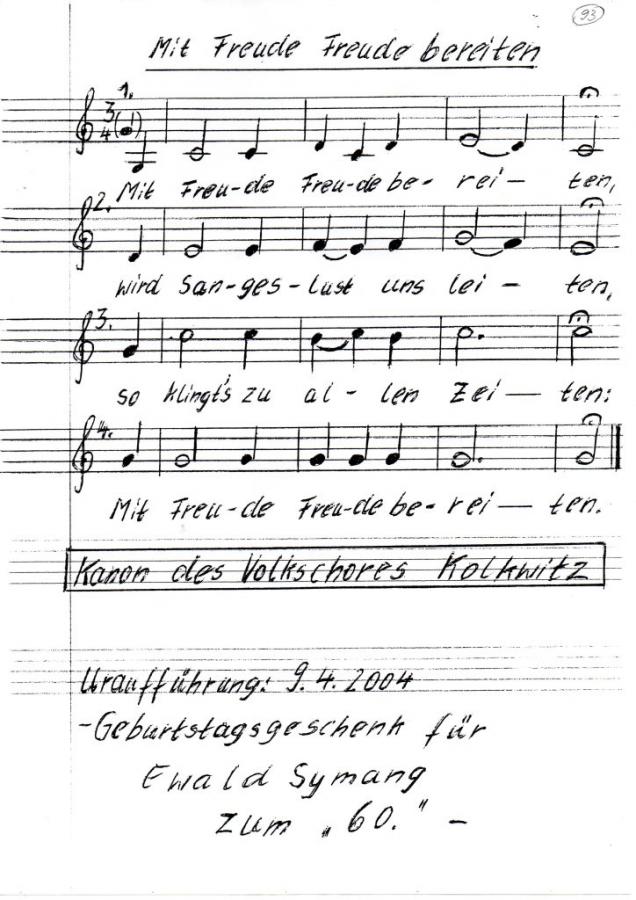 93
Mit Freude Freude bereiten
1.
3/4
Mit Freu-de Freu-de be- rei — ten,
2.
wird San-ges-lust uns lei — ten,
3.
so klingt's zu al- len Zei — ten:
4.
Mit Freu-de Freu-de be- rei — ten.
Kanon des Volkschores Kolkwitz
Uraufführung: 9.4.2004
-Geburtstagsgeschenk für
Ewald Symang
zum „60." -